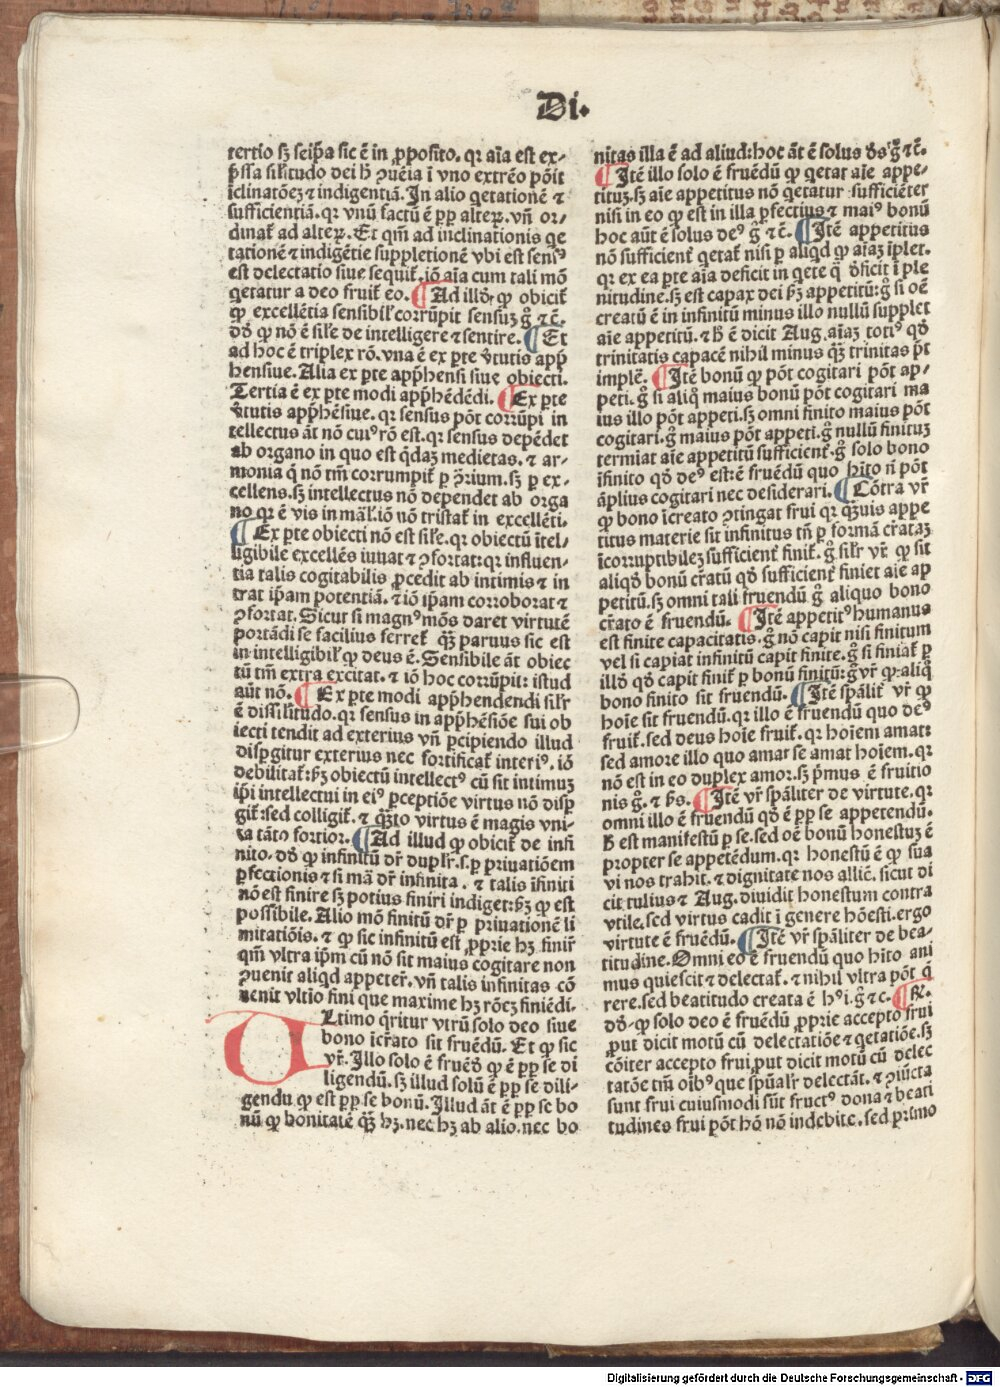 Di.
tertio sꝫ seip̄a sic ē in ꝓposito. qꝛ aīa est ex⸗
p̄ssa sil̄itudo dei h̄ ꝯuēia ī vno extrēo pōit
īclinatōeꝫ ⁊ indigentiā. In alio q̄etationē ⁊
sufficientiā. qꝛ vnū factū ē ꝓp alteꝝ. vn̄ or⸗
dinat̄ ad alteꝝ. Et qm̄ ad inclinationis q̄e
tationē ⁊ indigētie suppletionē vbi est sensꝰ
est delectatio siue sequit̄. iō aīa cum tali mō
q̄etatur a deo fruit̄ eo. ¶ Ad illd̄. ꝙ obicit̄
ꝙ excellētia sensibil̄ corrūpit sensuꝫ g̊ ⁊ c̄.
dd̄ ꝙ nō ē sil̄e de intelligere ⁊ sentire. ¶ Et
ad hoc ē triplex rō. vna ē ex ꝑte v̄tutis app̄
hensiue. Alia ex ꝑte app̄hensi siue obiecti.
Tertia ē ex ꝑte modi app̄hēdēdi. ¶ Ex ꝑte
v̄tutis app̄hēsiue. qꝛ sensus pōt corrūpi in
tellectus āt nō cuiꝰ rō est. qꝛ sensus depēdet
ab organo in quo est q̄daꝫ medietas. ⁊ ar⸗
monia q̄ nō tm̄ corrumpit̄ ꝑ ꝯ̄rium. sꝫ ꝑ ex⸗
cellens. sꝫ intellectus nō dependet ab orga
no qꝛ ē vis in māl̄. iō nō tristat̄ in excellēti.
¶ Ex ꝑte obiecti nō est sil̄e. qꝛ obiectū ītel⸗
ligibile excellēs iuuat ⁊ ꝯfortat: qꝛ influen⸗
tia talis cogitabilis ꝓcedit ab intimis ⁊ in
trat ip̄am potentiā. ⁊ iō ip̄am corroborat ⁊
ꝯfortat. Sicut si magnꝰ mōs daret virtutē
portādi se facilius ferret̄ qꝫ̄ paruus sic est
in intelligibil̄ ꝙ deus ē. Sensibile āt obiec
tū tm̄ extra excitat. ⁊ iō hoc corrūpit: istud
aūt nō. ¶ Ex ꝑte modi app̄hendendi sil̄r
ē dissil̄itudo. qꝛ sensus in app̄hēsiōe sui ob
iecti tendit ad exterius vn̄ ꝑcipiendo illud
disꝑgitur exterius nec fortificat̄ interiꝰ. iō
debilitat̄: h̄ꝫ obiectū intellectꝰ cū sit intimuꝫ
ip̄i intellectui in eiꝰ ꝑceptiōe virtus nō disꝑ
git̄: sed colligit̄. ⁊ qꝫ̄to virtus ē magis vni⸗
ta tāto fortior. ¶ Ad illud ꝙ obicit̄ de infi
nito. dd̄ ꝙ infinitū dr̄ dupl̄r. s. ꝑ priuatiōem
ꝑfectionis ⁊ si mā dr̄ infinita. ⁊ talis īfiniti
nō est finire sꝫ potius finiri indiget: h̄ꝫ ꝙ est
possibile. Alio mō finitū dr̄ ꝑ priuationē li
mitatiōis. ⁊ ꝙ sic infinitū est ꝓprie hꝫ finir̄
qm̄ vltra ip̄m cū nō sit maius cogitare non
ꝯuenit aliqd̄ appeter̄. vn̄ talis infinitas cō
uenit vltīo fini que maxime hꝫ rōeꝫ finiēdi.
Ultimo q̄ritur vtrū solo deo siue
bono īcr̄ato sit fruēdū. Et ꝙ sic
vr̄. Illo solo ē fruēd̄ ꝙ ē ꝓp se di
ligendū. sꝫ illud solū ē ꝓp se dili⸗
gendū ꝙ est ꝓp se bonū. Illud āt ē ꝓp se bo
nū ꝙ bonitatē qꝫ̄ hꝫ. nec hꝫ ab alio. nec bo
nitas illa ē ad aliud: hoc āt ē solus d̄s g̊ ⁊ c̄.
¶ Itē illo solo ē fruēdū ꝙ q̄etat aīe appe⸗
tituꝫ. sꝫ aīe appetitus nō q̄etatur sufficiēter
nisi in eo ꝙ est in illa ꝑfectius ⁊ maiꝰ bonū
hoc aūt ē solus deꝰ g̊ ⁊ c̄. ¶ Itē appetitus
nō sufficient̄ q̄etat̄ nisi ꝑ aliqd̄ ꝙ aīaꝫ īplet.
qꝛ ex ea ꝑte aīa deficit in q̄ete q̄ d̄ficit ī ple
nitudine. sꝫ est capax dei h̄ꝫ appetitū: g̊ si oē
creatū ē in infinitū minus illo nullū supplet
aīe appetitū. ⁊ h̄ ē dicit Aug. aīaꝫ totiꝰ qd̄
trinitatis capacē nihil minus qꝫ̄ trinitas p̄t
implē. ¶ Itē bonū ꝙ pōt cogitari pōt ap⸗
peti. g̊ si aliq̄ maius bonū pōt cogitari ma
ius illo pōt appeti. sꝫ omni finito maius pōt
cogitari. g̊ maius pōt appeti. g̊ nullū finituꝫ
termiat aīe appetitū sufficient̄. g̊ solo bono
īfinito qd̄ deꝰ est: ē fruēdū quo hīto n̄ pōt
āplius cogitari nec desiderari. ¶ Cōtra vr̄
ꝙ bono īcreato ꝯtingat frui qꝛ qꝫ̄uis appe
titus materie sit infinitus tn̄ ꝑ formā cr̄ataꝫ
īcorruptibileꝫ sufficient̄ finit̄. g̊ sil̄r vr̄ ꝙ sit
aliqd̄ bonū cr̄atū qd̄ sufficient̄ finiet aīe ap
petitū. sꝫ omni tali fruendū g̊ aliquo bono
cr̄ato ē fruendū. ¶ Itē appetitꝰ humanus
est finite capacitatis. g̊ nō capit nisi finitum
vel si capiat infinitū capit finite. g̊ si finiat̄ ꝑ
illd̄ qd̄ capit finit̄ ꝑ bonū finitū: g̊ vr̄ ꝙ aliq̄
bono finito sit fruendū. ¶ Itē sp̄alit̄ vr̄ ꝙ
hoīe sit fruendū. qꝛ illo ē fruendū quo deꝰ
fruit̄. sed deus hoīe fruit̄. qꝛ hoīem amat:
sed amore illo quo amat se amat hoīem. qꝛ
nō est in eo duplex amor. sꝫ p̄mus ē fruitio
nis g̊. ⁊ h̄s. ¶ Itē vr̄ sp̄āliter de virtute. qꝛ
omni illo ē fruendū qd̄ ē ꝓp se appetendū.
h̄ est manifestū ꝑ se. sed oē bonū honestuꝫ ē
propter se appetēdum. qꝛ honestū ē ꝙ sua
vi nos trahit. ⁊ dignitate nos allic̄. sicut di
cit tulius ⁊ Aug. diuidit honestum contra
vtile. sed virtus cadit ī genere hōesti. ergo
virtute ē fruēdū. ¶ Itē vr̄ sp̄āliter de bea⸗
titudine. Omni eo ē fruendū quo hīto ani
mus quiescit ⁊ delectat̄. ⁊ nihil vltra pōt q̄
rere. sed beatitudo creata ē hꝰi. g̊ ⁊ c. ¶ R̄.
dd̄. ꝙ solo deo ē fruēdū ꝓprie accepto frui
ꝓut dicit motū cū delectatiōe ⁊ q̄etatiōe. sꝫ
cōiter accepto frui ꝓut dicit motū cū delec
tatōe tm̄ oībꝰ que sp̄ūal̄r delectāt. ⁊ ꝯiūcta
sunt frui cuiusmodi sūt fructꝰ dona ⁊ beati
tudines frui pōt hō nō indebite. sed primo
Digitalisierung gefördert durch die Deutsche Forschungsgemeinschaft - DFG